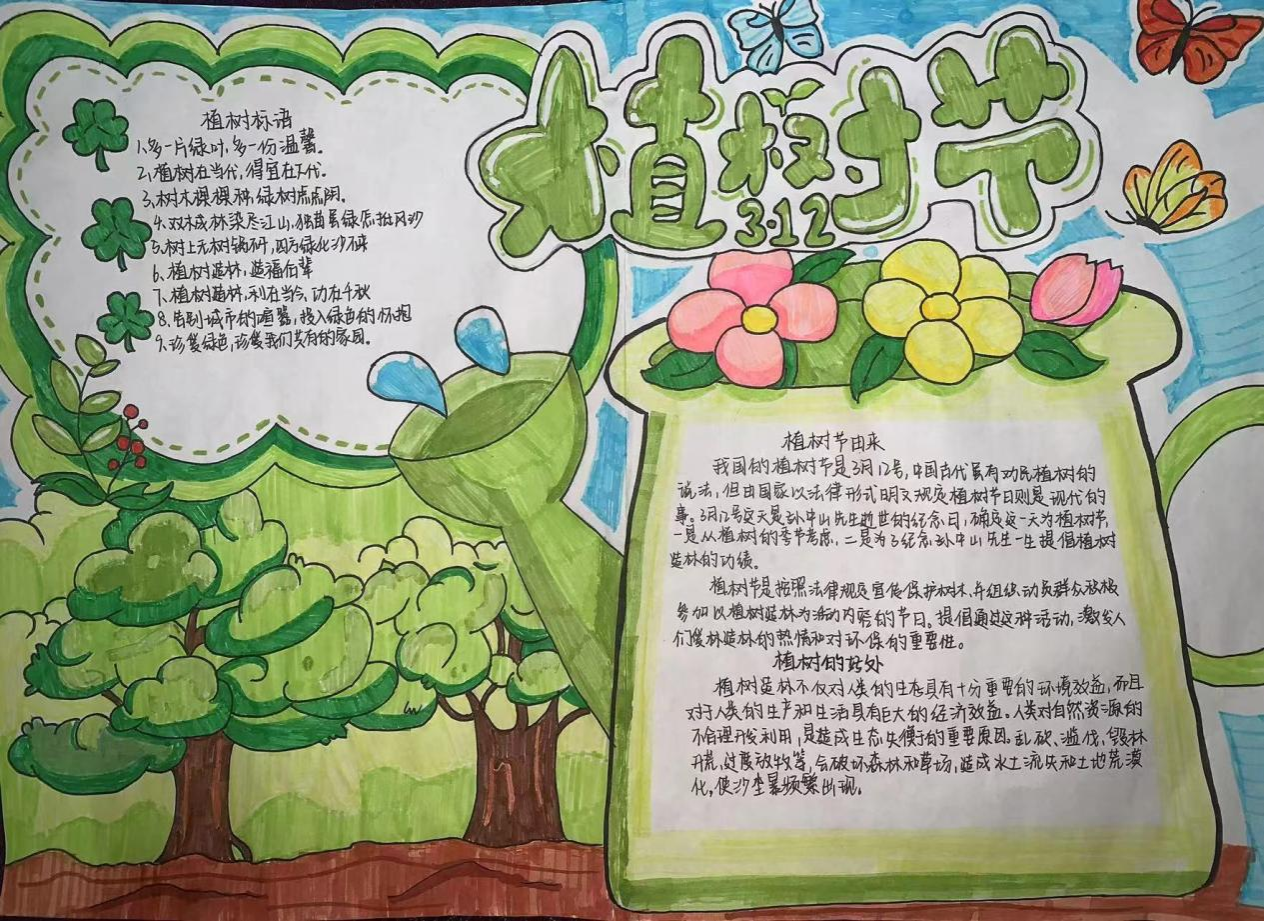 植树节
3·12
植树标语
1、多一片绿叶,多一份温馨。
2、植树在当代,得宜在下代。
3、树木棵棵种,绿树点点阴。
4、双木成林染尽江山,绿 抵风沙
5、树上无树 ,四方绿化沙不来
6、植树造林,造福后辈
7、植树造林,利在当今、功在千秋
8、告别城市的喧嚣,投入绿色的怀抱
9、珍爱绿色,珍爱我们共有的家园。
植树节由来
我国的植树节是3月12号,中国古代虽有劝民植树的
说法,但由国家以法律形式明文规定植树节日则是现代的
事。3月12号这天是孙中山先生逝世的纪念日,确定这一天为植树节,
一是从植树的季节考虑,二是为了纪念孙中山先生一生提倡植树
造林的功绩。
植树节是按照法律规定宣传保护树木,并组织动员群众积极
参加以植树造林为活动内容的节日。提倡通过这种活动,激发人
们爱林造林的热情和对环保的重要性。
植树的好处
植树造林不仅对人类的生态具有十分重要的环境效益,而且
对于人类的生产和生活具有巨大的经济效益。人类对自然资源的
不合理开发利用,是造成生态失衡的重要原因。乱砍、滥伐,毁林
开荒,过度放牧等,会破坏森林和草场,造成水土流失和土地荒漠
化,使沙尘暴频繁出现。